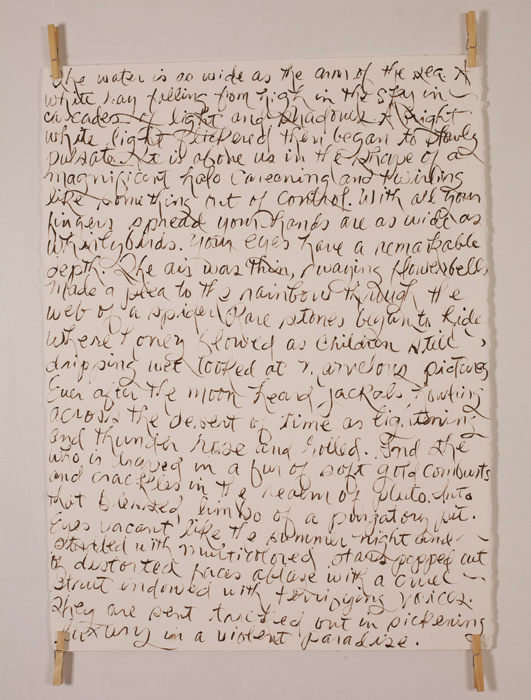 The water is as wide as the arm of the sea. A
white ray falling from high in the sky in
cascades of light and shadows. A bright
white light flickered then began to slowly
pulsate. It is above us in the shape of a
magnificent halo careening and twirling
like something out of control. With all your
fingers spread your hands are as wide as
whirlybirds. Your eyes have a remarkable
depth. The air was thin, swaying flowerbells
made a plea to the rainbow through the
web of a spider. Rare stones began to hide
where honey flowed as children still
dripping wet looked at marvelous pictures
Ever after the moon heard jackals howling
across the desert of time as lightening
and thunder rose and rolled. And she
who is draped in a fur of soft gold combusts
and crackles in the realm of pluto. Into
that blessed limbo of a purgatory pit.
Eyes vacant like the summer night and
studded with multicolored stars popped out
of distorted faces ablaze with a cruel
strut endowed with terrifying voices.
They are sent tricked out in sickening
luxury in a violent paradise.